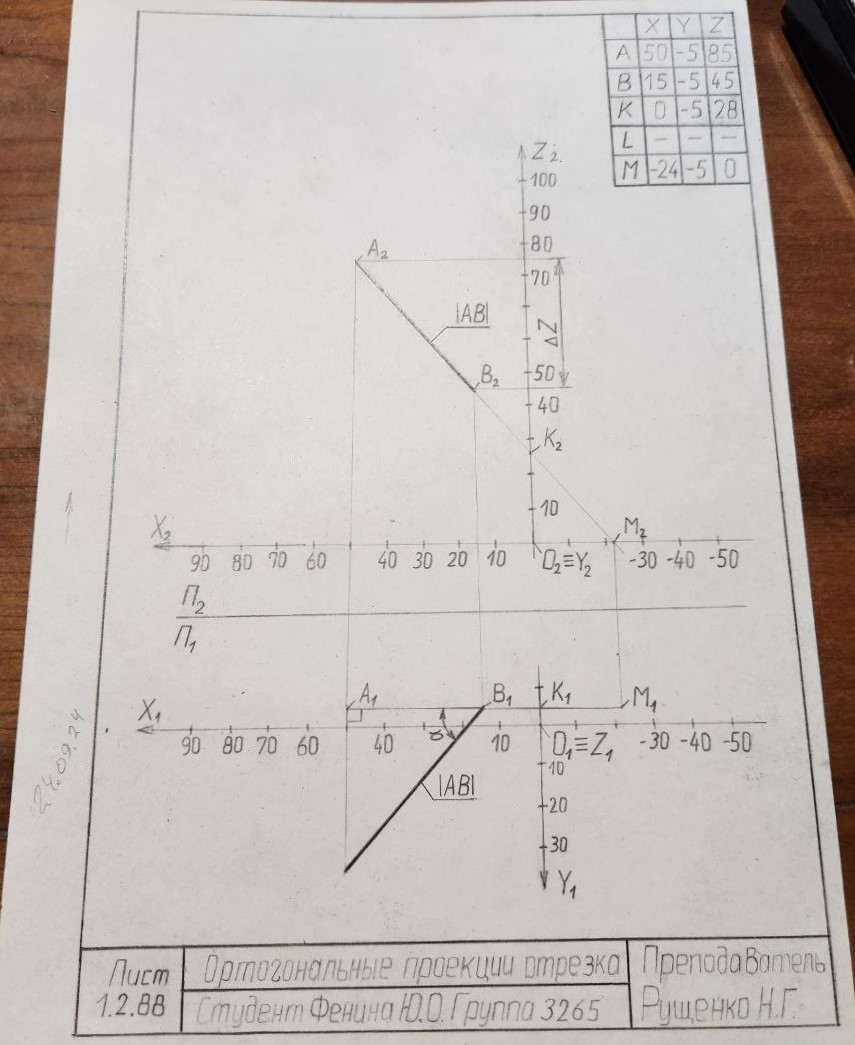 X Y Z
A 50 -5 85
B 15 -5 45
K 0 -5 28
L – – –
M -24 -5 0
Z₂
100
90
80
A₂
70
|AB|
ΔZ
B₂
50
40
K₂
10
X₂
M₂
90 80 70 60 40 30 20 10 O₂≡Y₂ -30 -40 -50
П₂
П₁
A₁ B₁ K₁ M₁
X₁
90 80 70 60 40 10 O₁≡Z₁ -30 -40 -50
α
10
|AB|
20
30
Y₁
24.09.24
Лист
1.2.88
Ортогональные проекции отрезка
Студент Фенина Ю.О. Группа 3265
Преподаватель
Рущенко Н.Г.